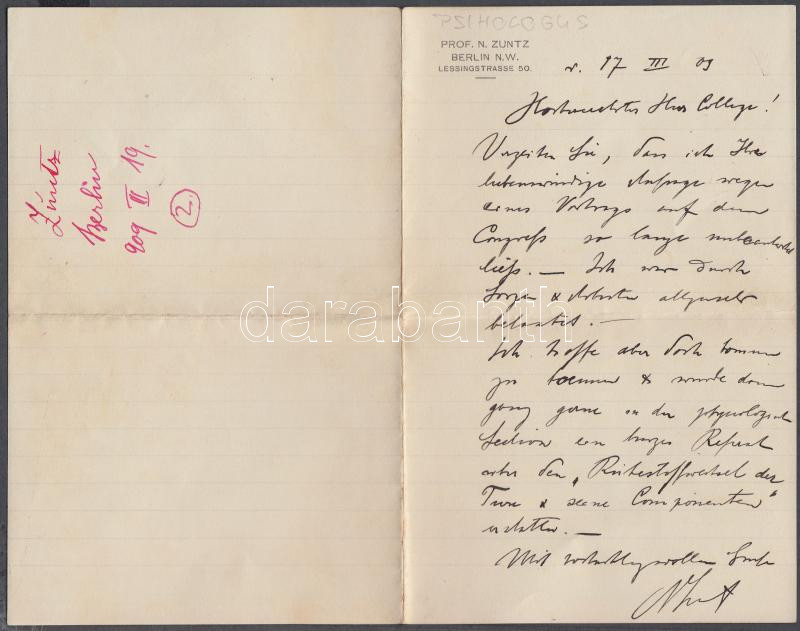 Zuntz
Berlin
909 III 19.
2.
PSIHOLOGUS
PROF. N. ZUNTZ
BERLIN N.W.
LESSINGSTRASSE 50.
d. 17 III 09
Hochverehrter Herr College!
Verzeihen Sie, dass ich Ihre
liebenswürdige Anfrage wegen
eines Vortrags auf dem
Congress so lange unbeantwortet
liess. — Ich war durch
Sorgen & Arbeiten allzusehr
belastet. —
Ich hoffe aber doch kommen
zu koennen & wurde dann
ganz gerne in der physiologisch
Section ein kurzes Referat
über den „Ruhestoffwechsel der
Tiere & seine Componenten"
erstatten. —
Mit hochachtungsvollem Gruße
N Zuntz
darabanth